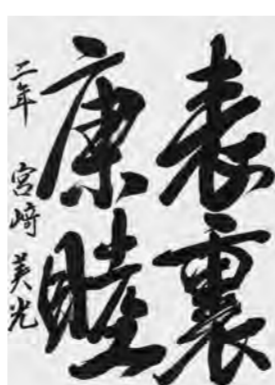 表裏
康睦
二年 宮崎 美光